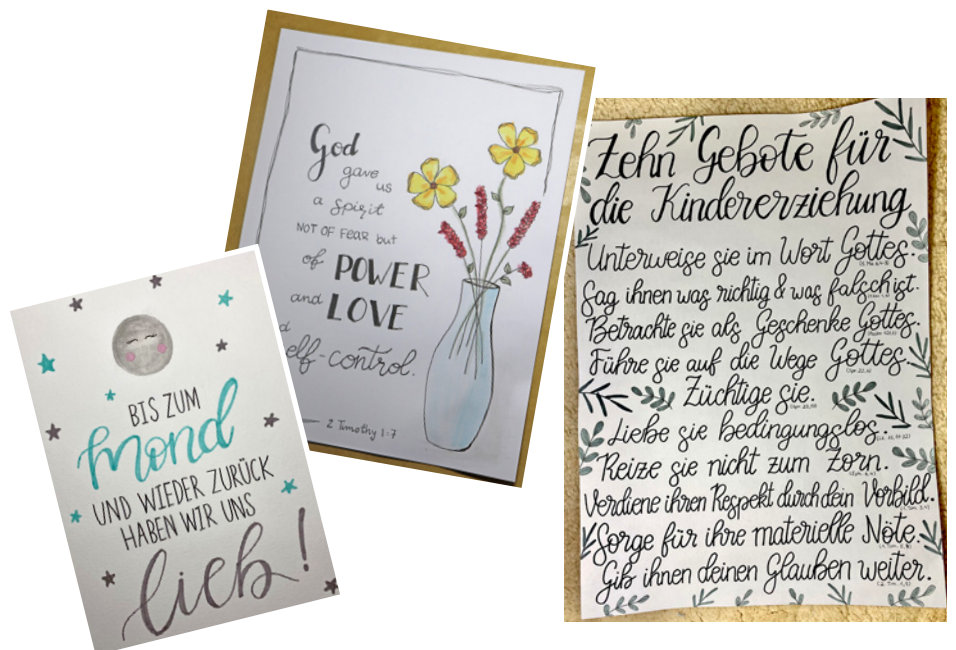 BIS ZUM
Mond
UND WIEDER ZURÜCK
HABEN WIR UNS
lieb!
God
gave us
a Spirit
NOT OF FEAR but
of POWER
and LOVE
d
elf-control.
2 Timothy 1:7
Zehn Gebote für
die Kindererziehung
Unterweise sie im Wort Gottes.
Sag ihnen was richtig & was falsch ist.
Betrachte sie als Geschenke Gottes.
Führe sie auf die Wege Gottes.
(Spr. 22,6)
Züchtige sie.
Liebe sie bedingungslos.
Reize sie nicht zum Zorn.
(Eph. 6,4)
Verdiene ihren Respekt durch dein Vorbild.
Sorge für ihre materielle Nöte.
Gib ihnen deinen Glauben weiter.
(2. Tim. 1,5)